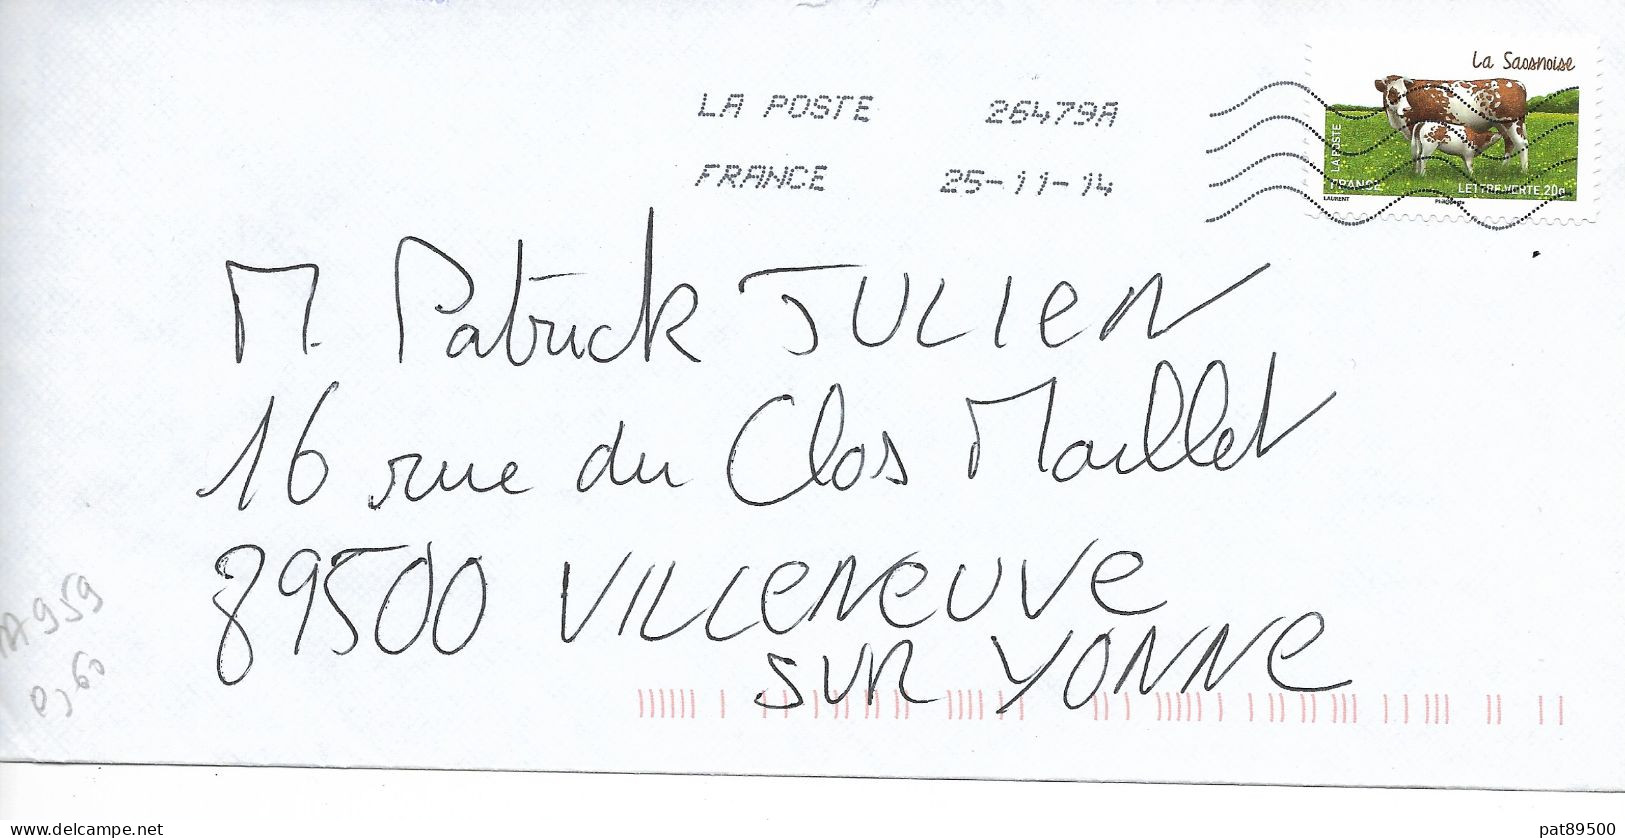 La Saosnoise
LA POSTE 26479A
FRANCE 25-11-14
LA POSTE
FRANCE LETTRE VERTE 20g
LAURENT
M. Patrick JULIEN
16 rue du Clos Maillet
89500 VILLENEUVE
SUR YONNE
959
0,60
pat89500